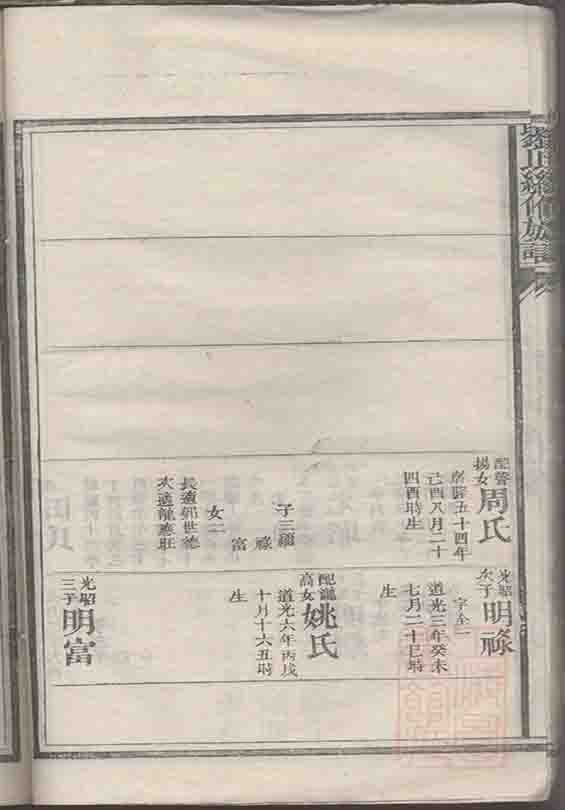 修族譜
配管
揚女
周氏
乾隆五十四年
己酉八月二十
四酉時生
子三福
祿
富
女二
長適郭世德
次適龍應旺
光昭
次子
明祿
字全一
道光三年癸未
七月二十巳時
生
配龍
高女
姚氏
道光六年丙戌
十月十六丑時
生
光昭
三子
明富